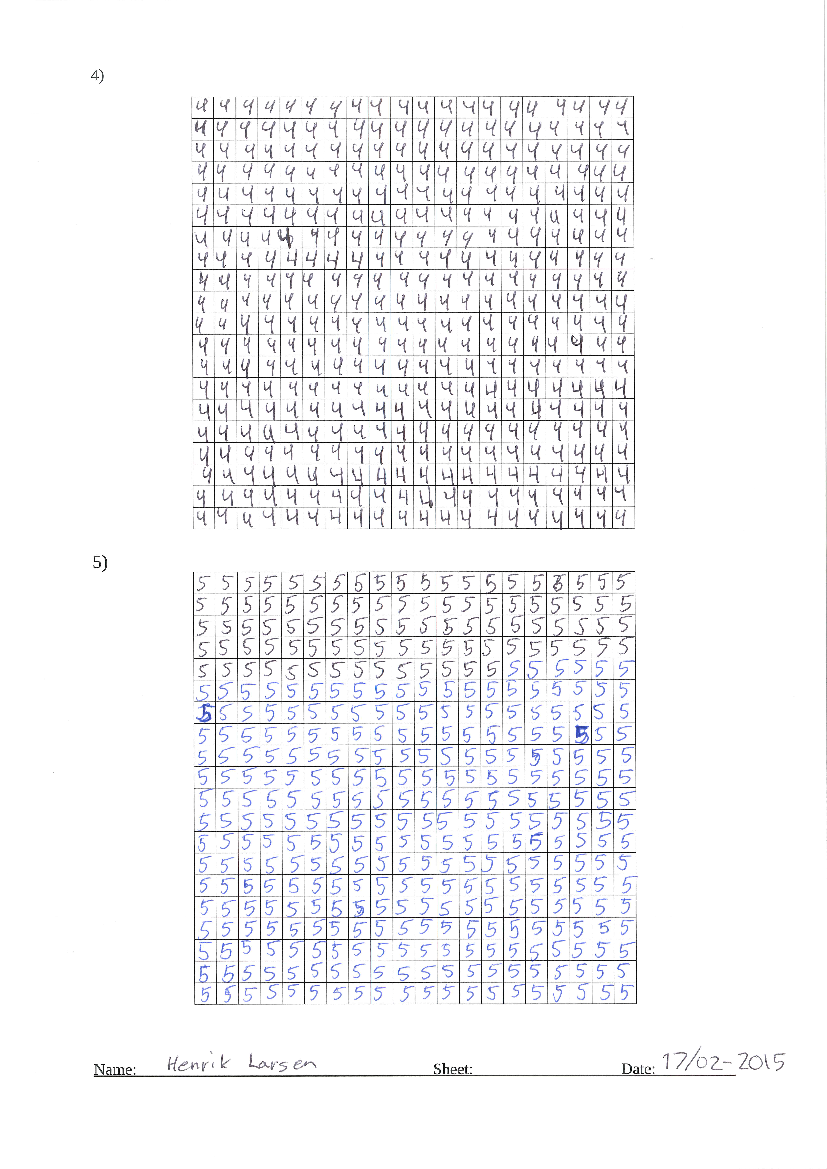 4)
4 4 4 4 4 4 4 4 4 4 4 4 4 4 4 4 4 4 4 4
4 4 4 4 4 4 4 4 4 4 4 4 4 4 4 4 4 4 4 4
4 4 4 4 4 4 4 4 4 4 4 4 4 4 4 4 4 4 4 4
4 4 4 4 4 4 4 4 4 4 4 4 4 4 4 4 4 4 4 4
4 4 4 4 4 4 4 4 4 4 4 4 4 4 4 4 4 4 4 4
4 4 4 4 4 4 4 4 4 4 4 4 4 4 4 4 4 4 4 4
4 4 4 4 4 4 4 4 4 4 4 4 4 4 4 4 4 4 4 4
4 4 4 4 4 4 4 4 4 4 4 4 4 4 4 4 4 4 4 4
4 4 4 4 4 4 4 4 4 4 4 4 4 4 4 4 4 4 4 4
4 4 4 4 4 4 4 4 4 4 4 4 4 4 4 4 4 4 4 4
4 4 4 4 4 4 4 4 4 4 4 4 4 4 4 4 4 4 4 4
4 4 4 4 4 4 4 4 4 4 4 4 4 4 4 4 4 4 4 4
4 4 4 4 4 4 4 4 4 4 4 4 4 4 4 4 4 4 4 4
4 4 4 4 4 4 4 4 4 4 4 4 4 4 4 4 4 4 4 4
4 4 4 4 4 4 4 4 4 4 4 4 4 4 4 4 4 4 4 4
4 4 4 4 4 4 4 4 4 4 4 4 4 4 4 4 4 4 4 4
4 4 4 4 4 4 4 4 4 4 4 4 4 4 4 4 4 4 4 4
4 4 4 4 4 4 4 4 4 4 4 4 4 4 4 4 4 4 4 4
4 4 4 4 4 4 4 4 4 4 4 4 4 4 4 4 4 4 4 4
4 4 4 4 4 4 4 4 4 4 4 4 4 4 4 4 4 4 4 4
5)
5 5 5 5 5 5 5 5 5 5 5 5 5 5 5 5 5 5 5 5
5 5 5 5 5 5 5 5 5 5 5 5 5 5 5 5 5 5 5 5
5 5 5 5 5 5 5 5 5 5 5 5 5 5 5 5 5 5 5 5
5 5 5 5 5 5 5 5 5 5 5 5 5 5 5 5 5 5 5 5
5 5 5 5 5 5 5 5 5 5 5 5 5 5 5 5 5 5 5 5
5 5 5 5 5 5 5 5 5 5 5 5 5 5 5 5 5 5 5 5
5 5 5 5 5 5 5 5 5 5 5 5 5 5 5 5 5 5 5 5
5 5 5 5 5 5 5 5 5 5 5 5 5 5 5 5 5 5 5 5
5 5 5 5 5 5 5 5 5 5 5 5 5 5 5 5 5 5 5 5
5 5 5 5 5 5 5 5 5 5 5 5 5 5 5 5 5 5 5 5
5 5 5 5 5 5 5 5 5 5 5 5 5 5 5 5 5 5 5 5
5 5 5 5 5 5 5 5 5 5 5 5 5 5 5 5 5 5 5 5
5 5 5 5 5 5 5 5 5 5 5 5 5 5 5 5 5 5 5 5
5 5 5 5 5 5 5 5 5 5 5 5 5 5 5 5 5 5 5 5
5 5 5 5 5 5 5 5 5 5 5 5 5 5 5 5 5 5 5 5
5 5 5 5 5 5 5 5 5 5 5 5 5 5 5 5 5 5 5 5
5 5 5 5 5 5 5 5 5 5 5 5 5 5 5 5 5 5 5 5
5 5 5 5 5 5 5 5 5 5 5 5 5 5 5 5 5 5 5 5
5 5 5 5 5 5 5 5 5 5 5 5 5 5 5 5 5 5 5 5
5 5 5 5 5 5 5 5 5 5 5 5 5 5 5 5 5 5 5 5
Name: Henrik Larsen Sheet: Date: 17/02-2015